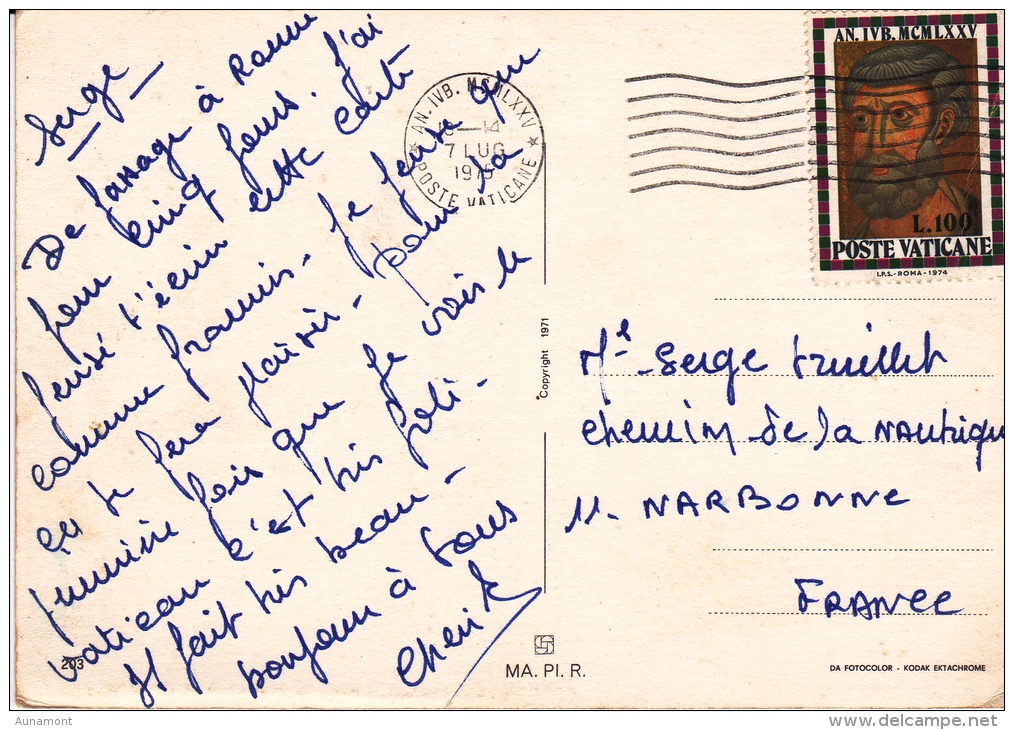 Serge
De passage à Rome
pour cinq jours. J'ai
pensé t'écrire cette carte
comme promis - Je pense que
ça te fera plaisir - pour la
première fois que je vois le
vatican c'est très joli -
Il fait très beau -
bonjour à tous
AN. IVB. MCMLXXV
7 LUG
1975
POSTE VATICANE
AN. IVB. MCMLXXV
L.100
POSTE VATICANE
I.P.S.-ROMA-1974
Copyright 1971
Mr Serge Truillet
Chemin de la Nautique
11. NARBONNE
FRANCE
203
MA. PI. R.
DA FOTOCOLOR - KODAK EKTACHROME
Aunamont
delcampe.net